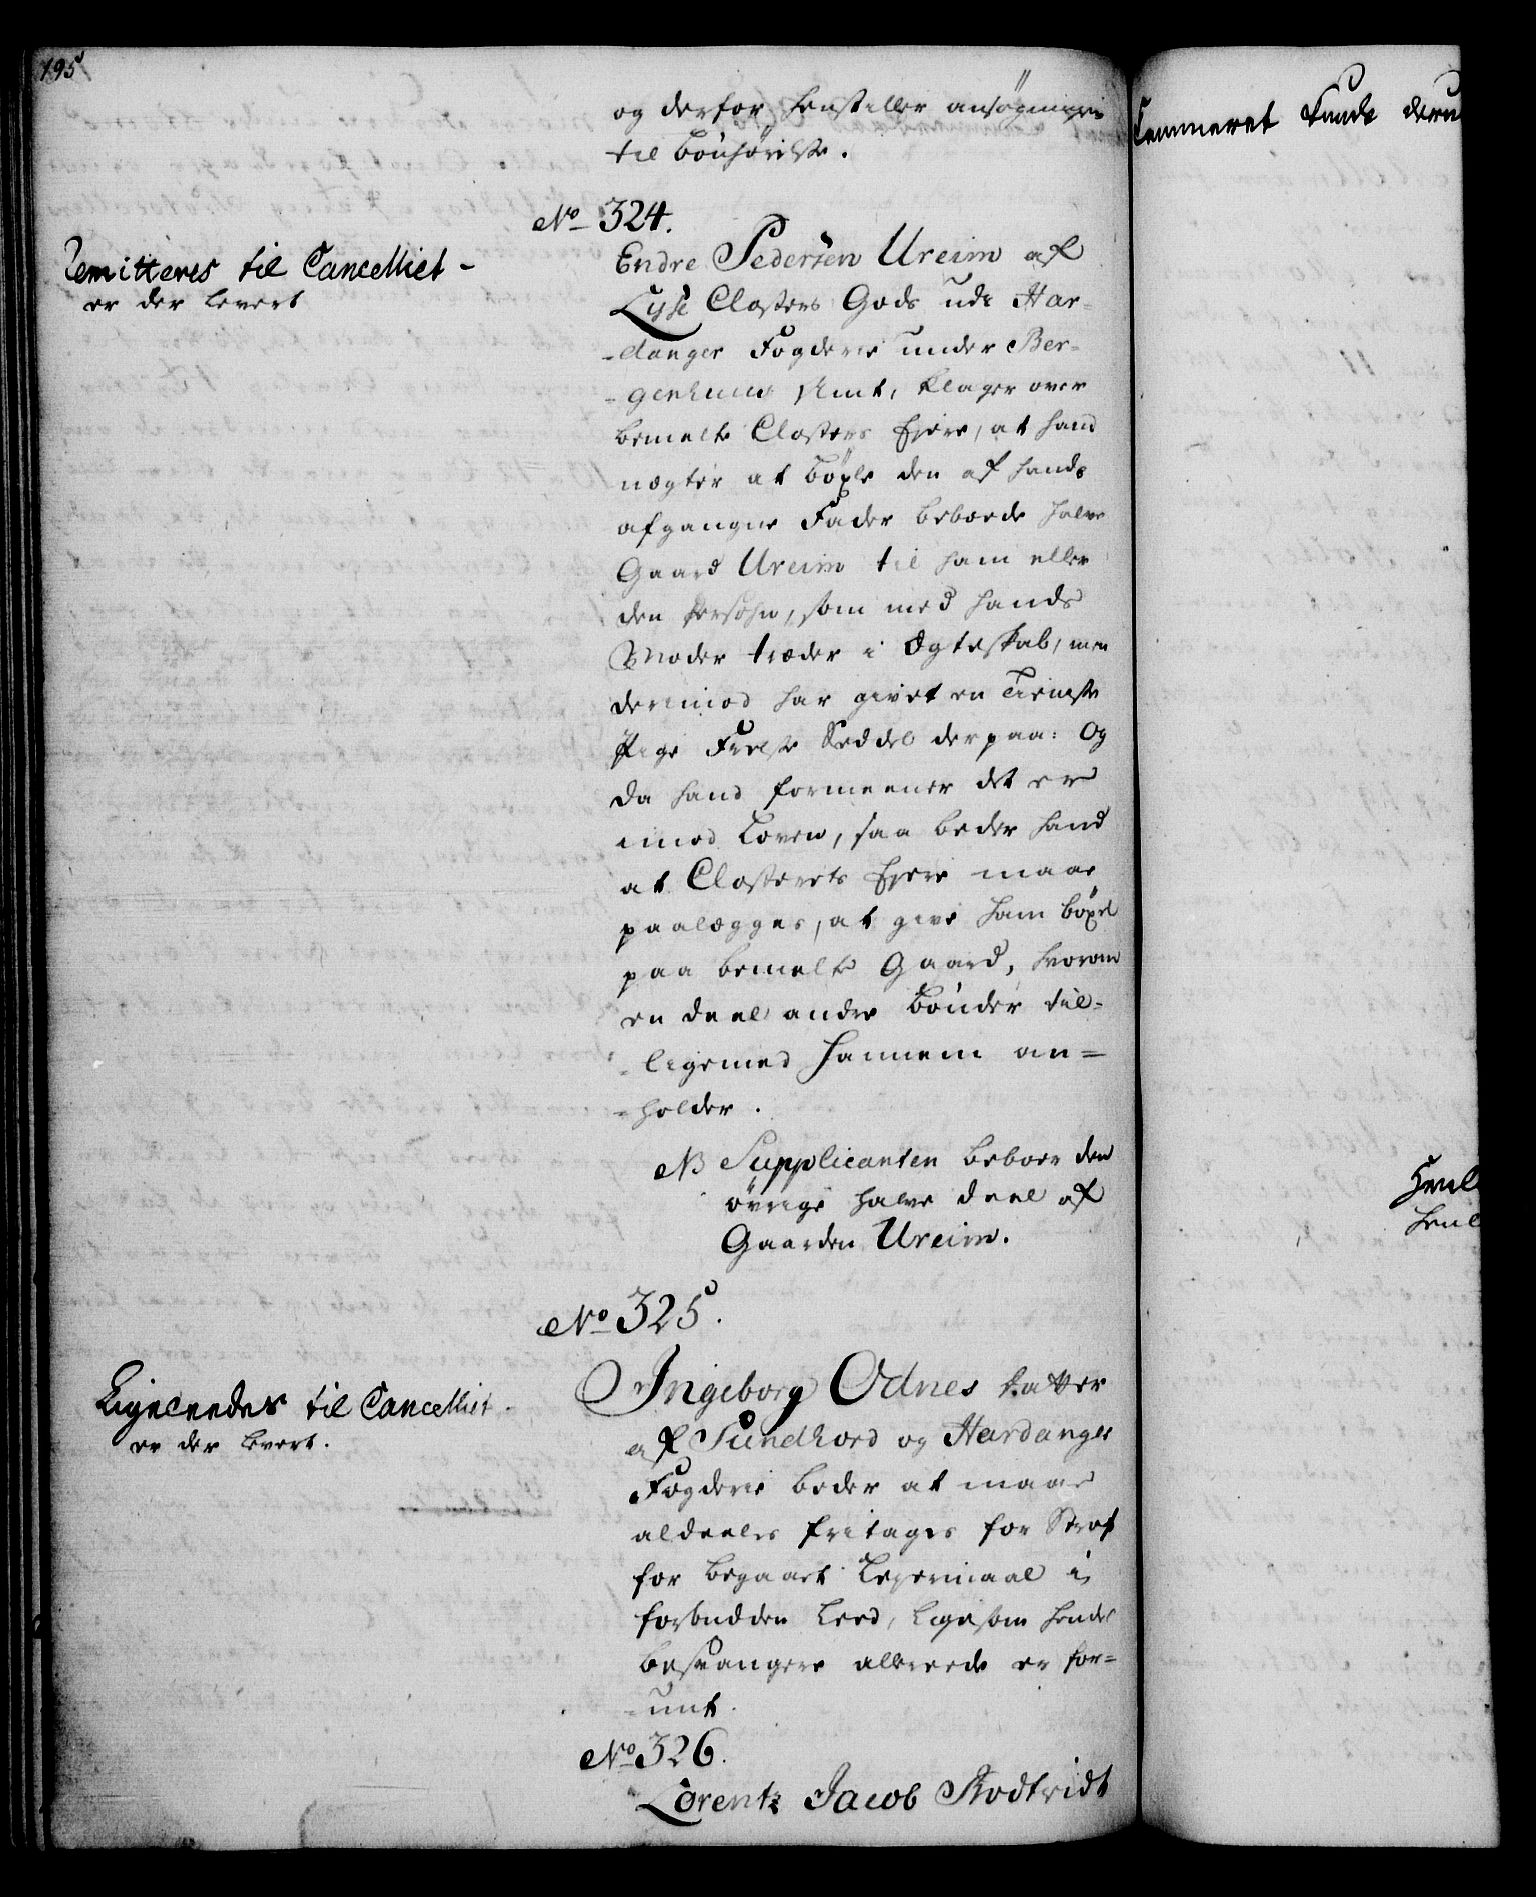 195
og derfor henstiller ansøgningen
til bønhørelse.
No 324.
Remitteres til Cancelliet -
er der levert
Endre Pedersen Ureim af
Lyse Closters Gods udi Har-
-danger Fogderie under Ber-
-genhuus Amt, klager over
bemelte Closters Ejere, at hand
nægter at bøxle den af hands
afgangne Fader beboede halve
Gaard Ureim til ham eller
den Persohn, som med hands
Moder træder i Ægteskab, men
derimod har givet en Tieneste
Pige Fæste Seddel derpaa: Og
da hand formeener det er
imod Loven, saa beder hand
at Closterets Ejere maae
paalægges, at give ham bøxel
paa bemelte Gaard, hvorom
en deel andre Bønder til-
-ligemed hannem an=
=holder.
NB Supplicanten beboer den
øvrige halve deel af
Gaarden Ureim.
No 325.
Ligeleedes til Cancelliet.
er der levert.
Ingeborg Odnes Datter
af Sundhord og Hardanger
Fogderie beder at maae
aldeeles fritages for Straf
for begaaet Leyermaal i
forbudden Leed, ligesom hendes
besvangere allereede er for=
-unt.
No 326.
Lorentz Jacob Rodtvidt
Cammeret kunde deru